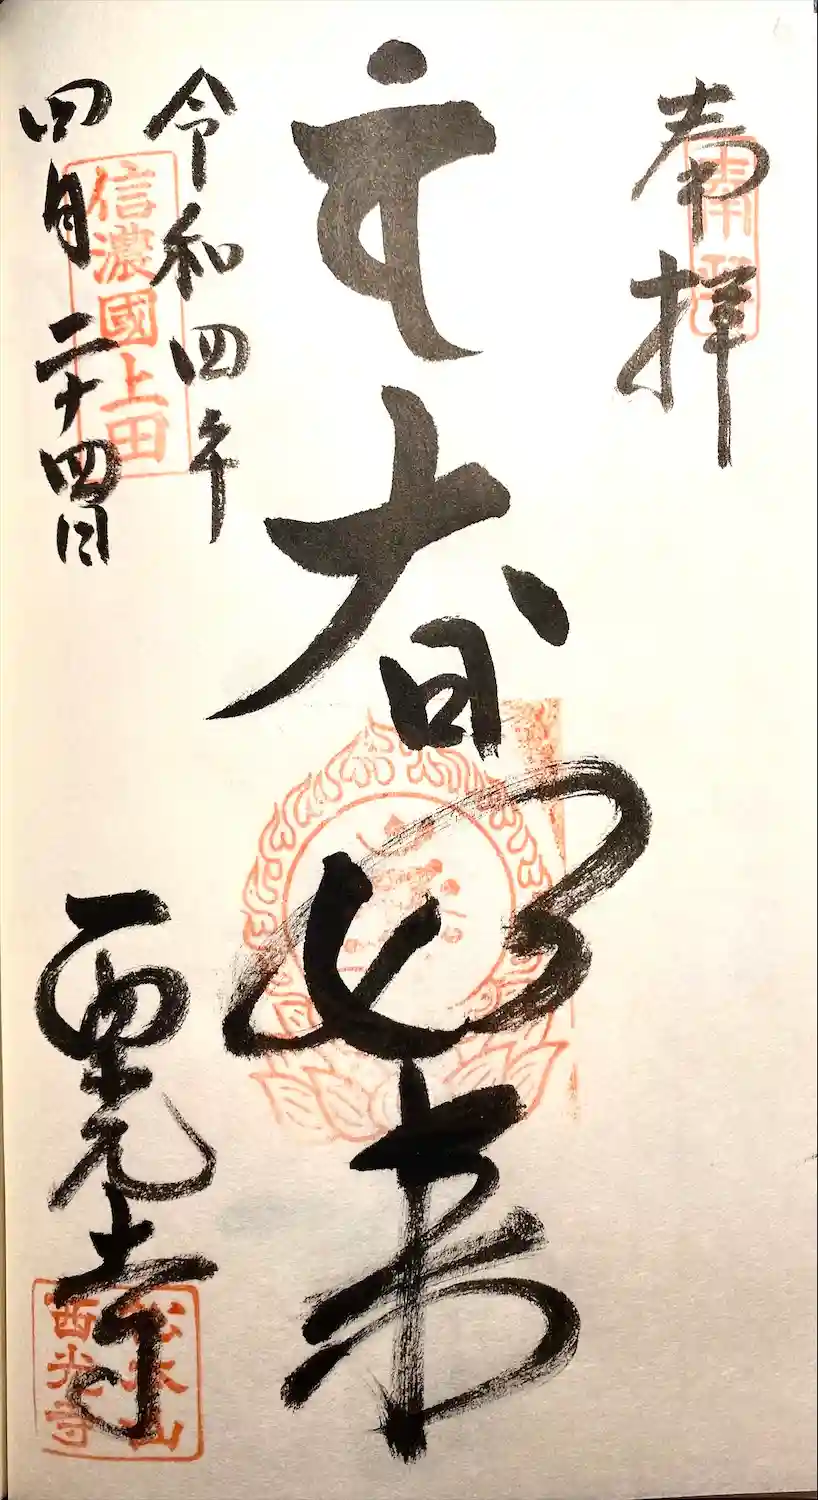 奉拝
奉拝
大日如来
令和四年
四月二十四日
信濃國上田
西光寺
西光寺